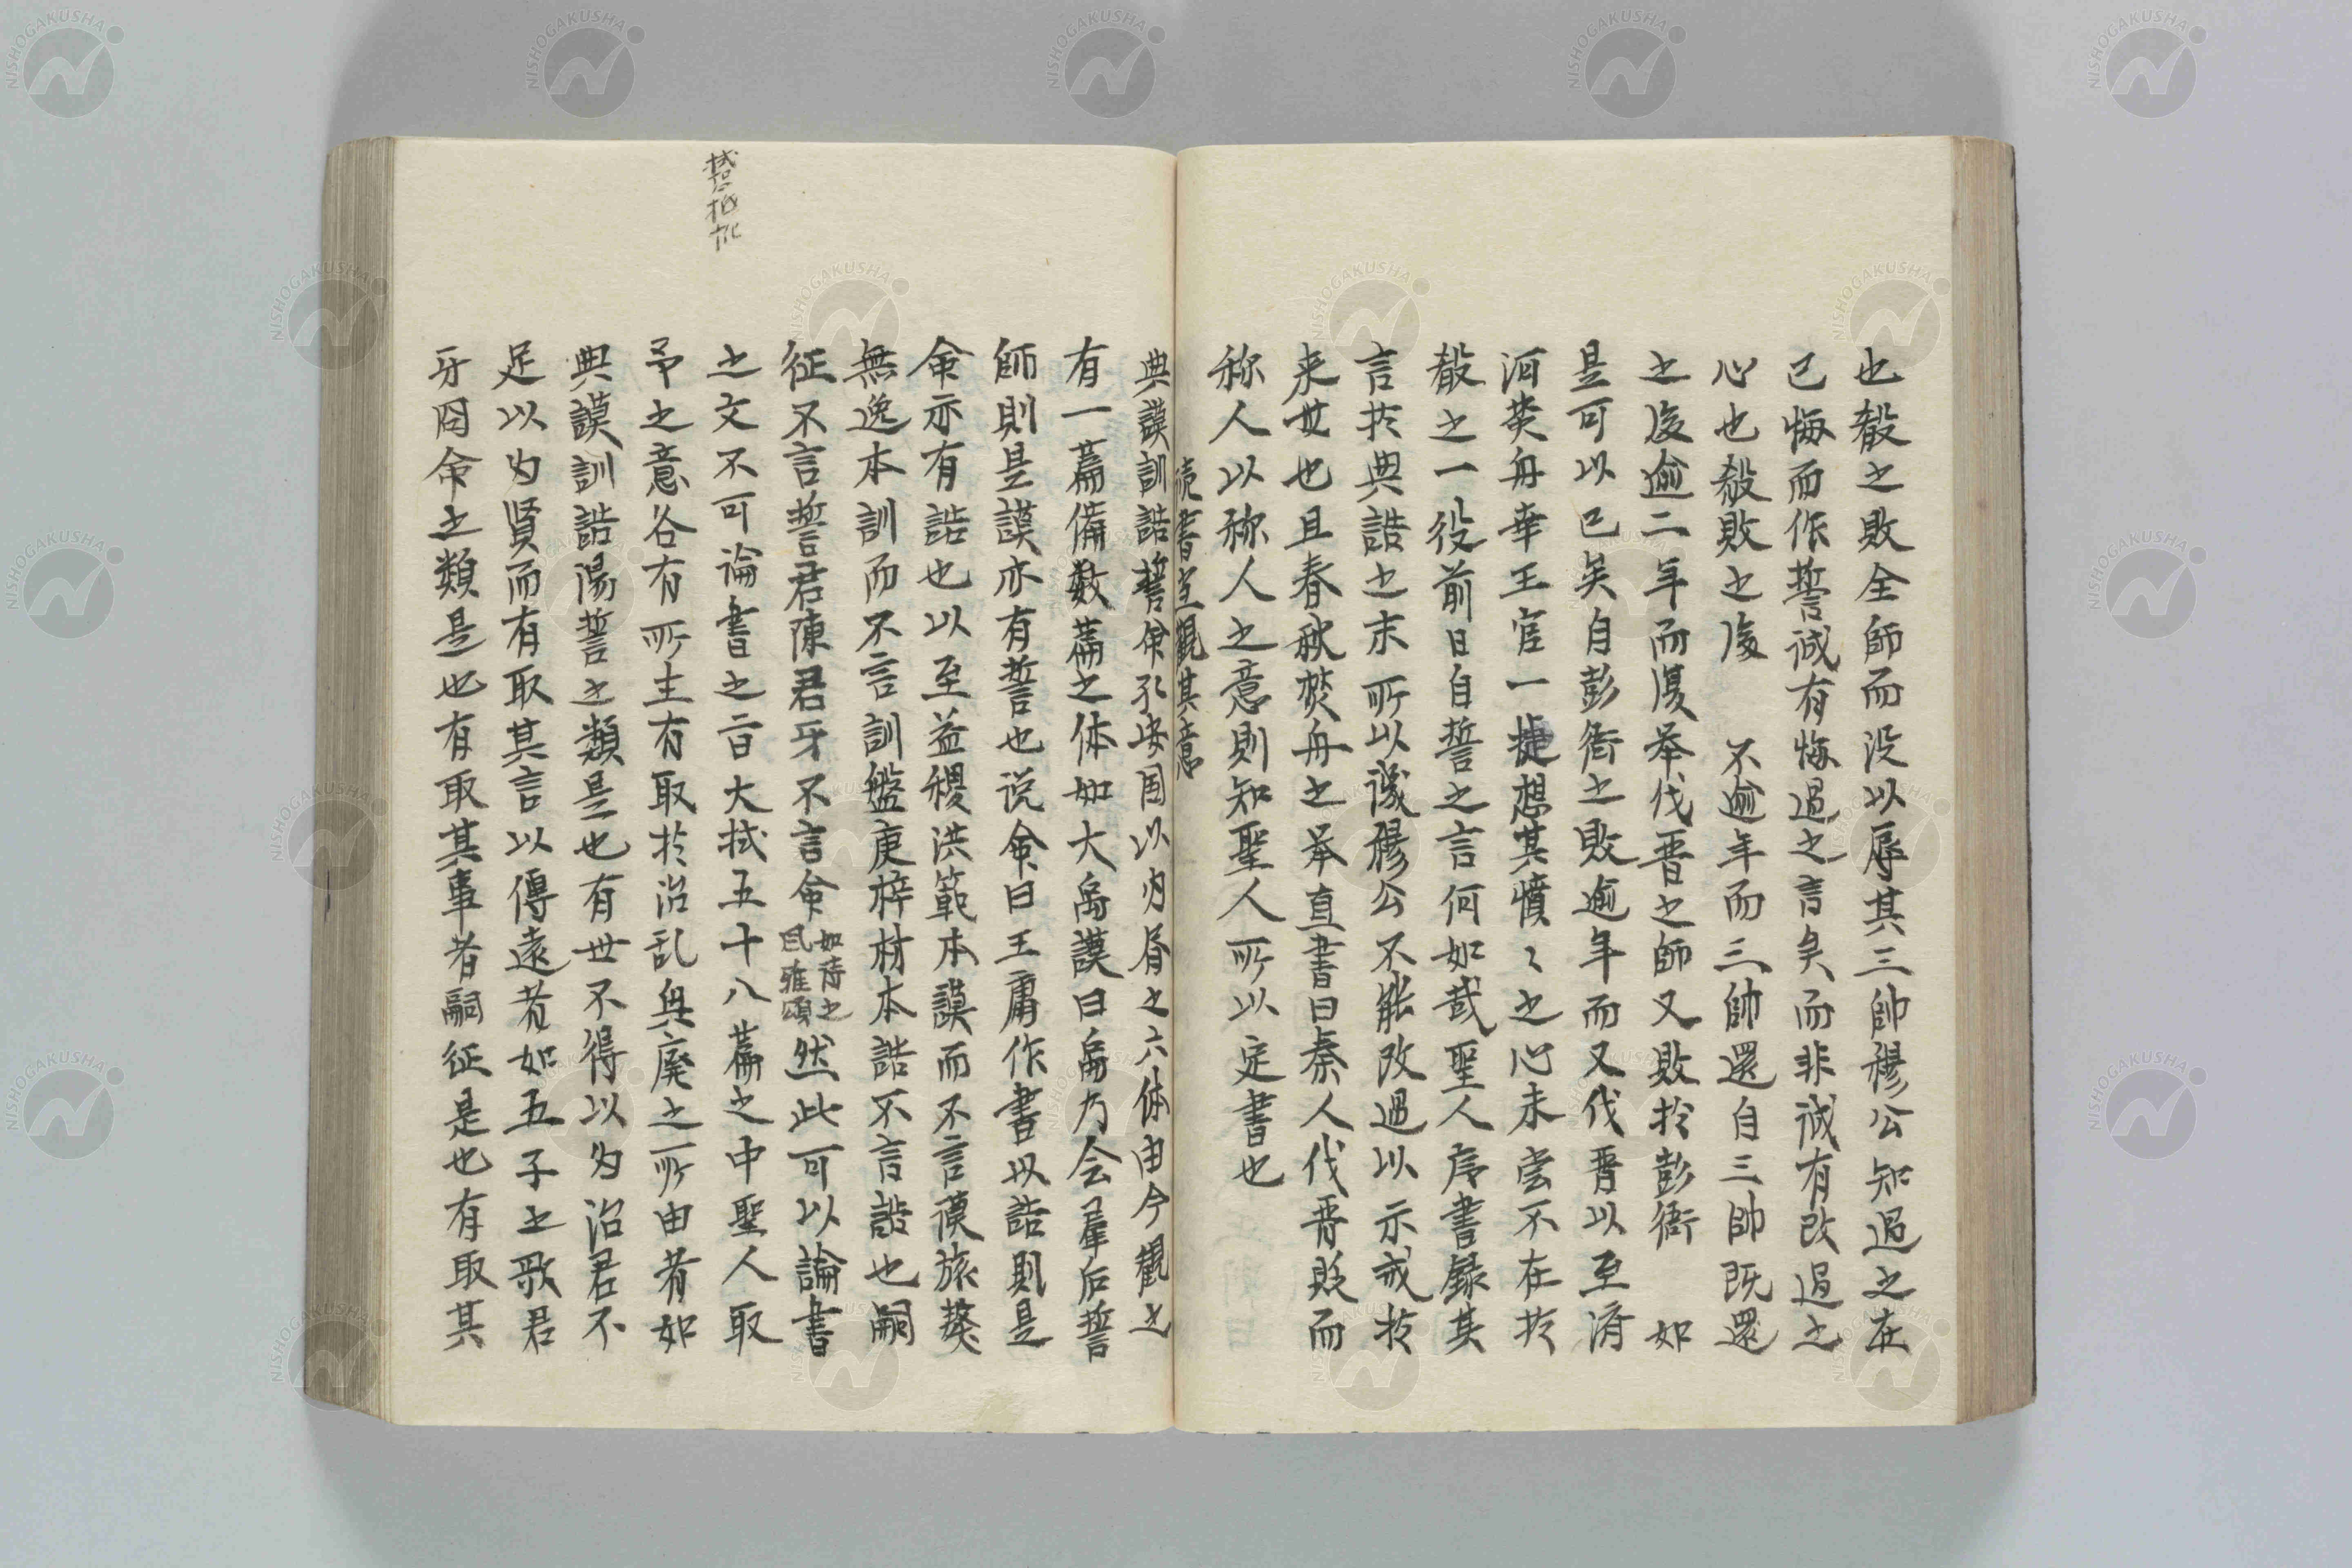 也殽之敗全師而没以辱其三帥穆公知過之在
己悔而作誓誠有悔過之言矣而非誠有改過之
心也殽敗之後不逾年而三帥還自三帥既還
之後逾二年而復举伐晋之師又敗於彭衙如
是可以已矣自彭衙之敗逾年而又伐晋以至済
河焚舟幸王官一捷想其憤〻之心未尝不在於
殽之一役前日自誓之言何如哉聖人序書録其
言於典誥之末所以譏穆公不能改過以示戒於
来世也且春秋焚舟之举直書曰秦人伐晋貶而
称人以称人之意則知聖人所以定書也
読書当観其意
典謨訓誥誓命孔安国以为昏之六体由今観之
有一萹備数萹之体如大禹謨曰禹乃会羣后誓
師則是謨亦有誓也说命曰王庸作書以誥則是
命亦有誥也以至益稷洪範本謨而不言謨旅獒
無逸本訓而不言訓盤庚梓材本誥不言誥也嗣
征不言誓君陳君牙不言命如诗之風雅頌然此可以論書
之文不可論書之㫖大拭五十八萹之中聖人取
予之意各有所主有取於治乱興廃之所由者如
典謨訓誥湯誓之類是也有世不得以为治君不
足以为賢而有取其言以傳遠者如五子之歌君
牙冏命之類是也有取其事者嗣征是也有取其